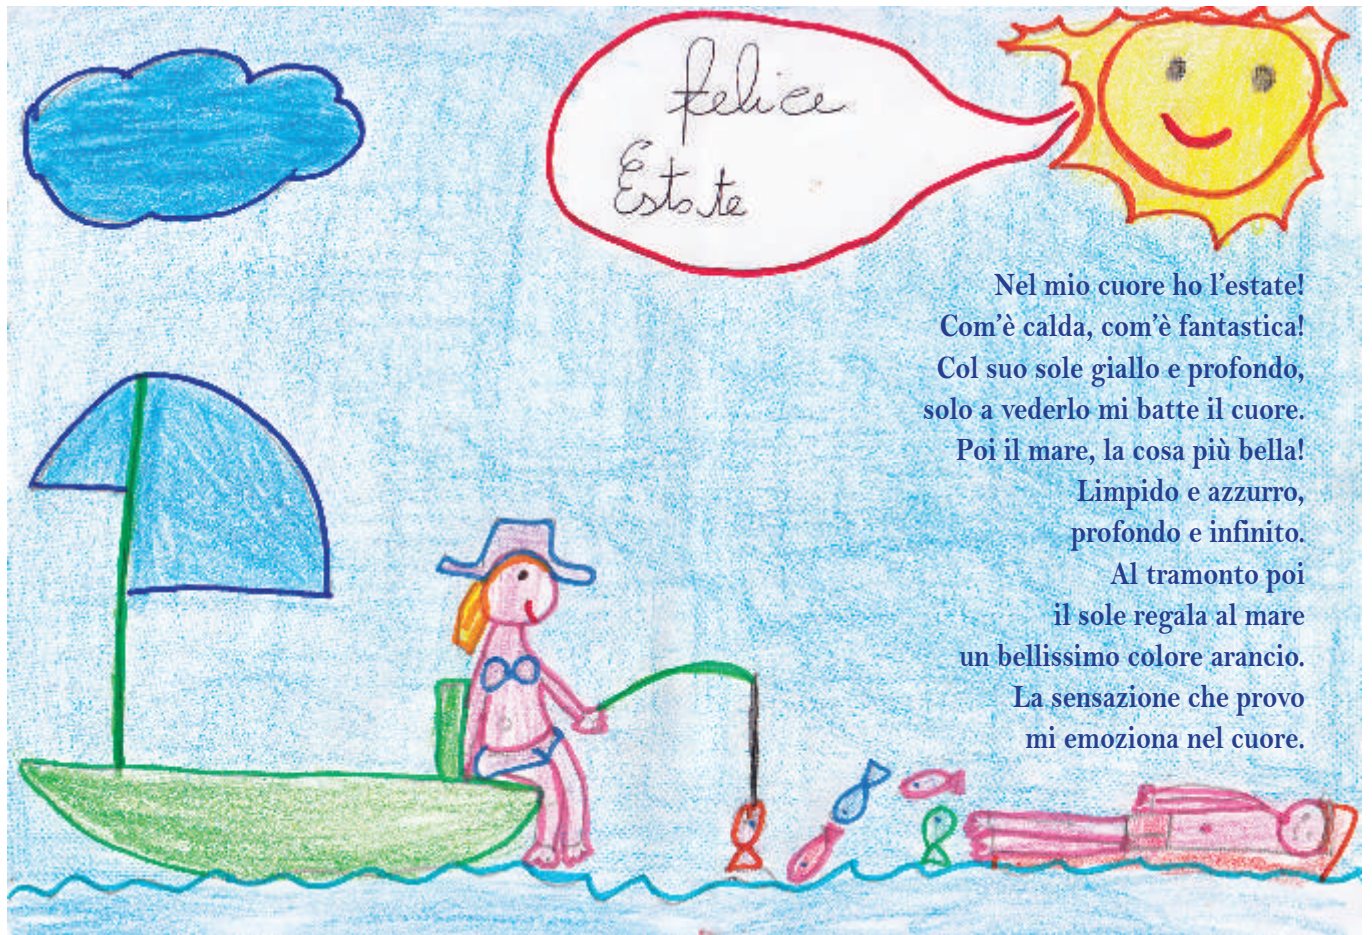 felice
Estate
Nel mio cuore ho l’estate!
Com’è calda, com’è fantastica!
Col suo sole giallo e profondo,
solo a vederlo mi batte il cuore.
Poi il mare, la cosa più bella!
Limpido e azzurro,
profondo e infinito.
Al tramonto poi
il sole regala al mare
un bellissimo colore arancio.
La sensazione che provo
mi emoziona nel cuore.